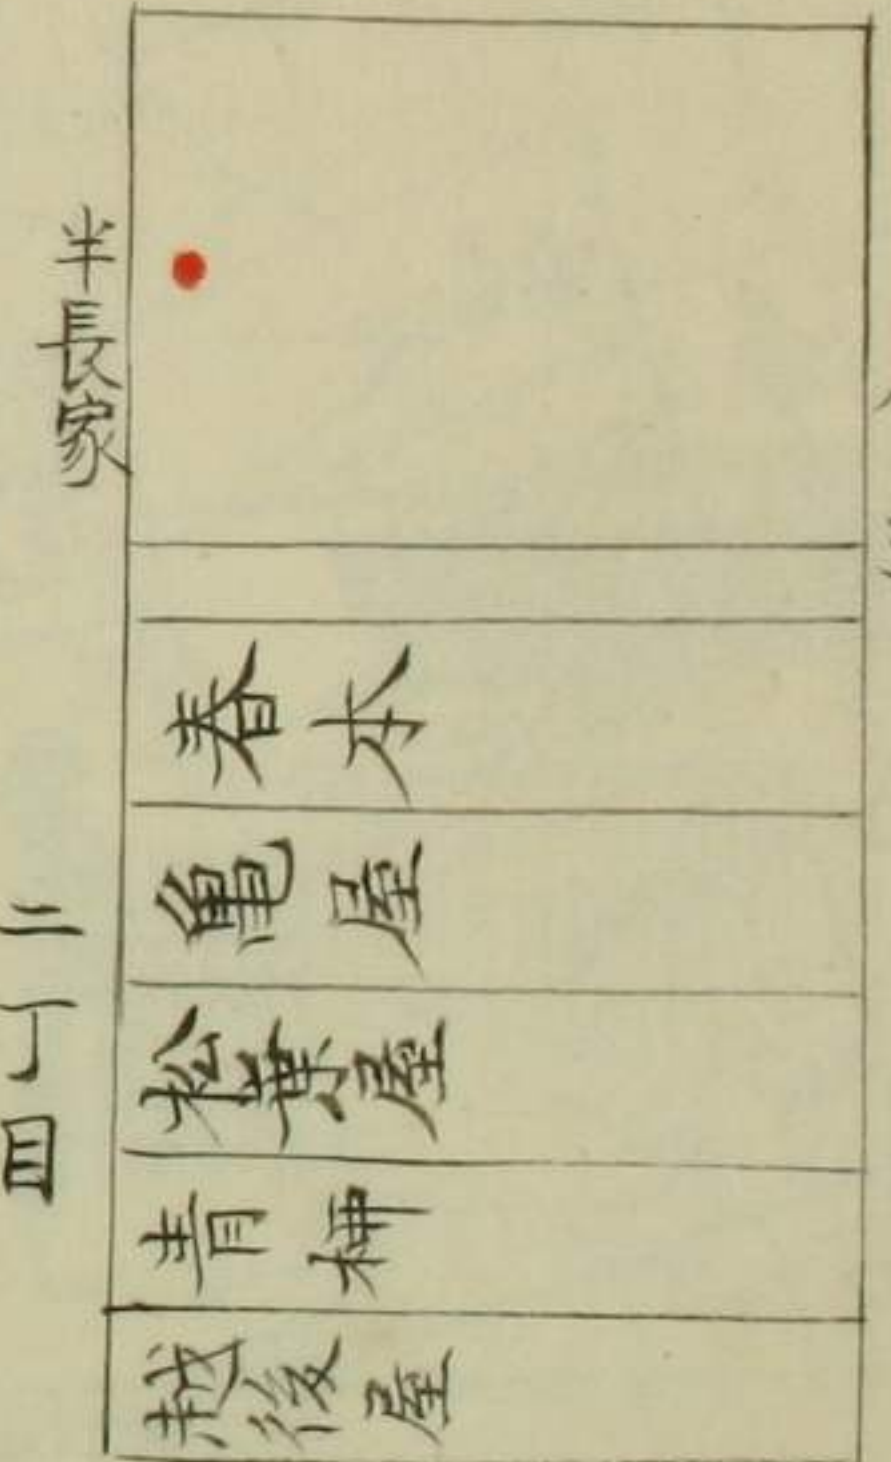 半長家
二丁目
春木
亀屋
松葉屋
青柳
越後屋